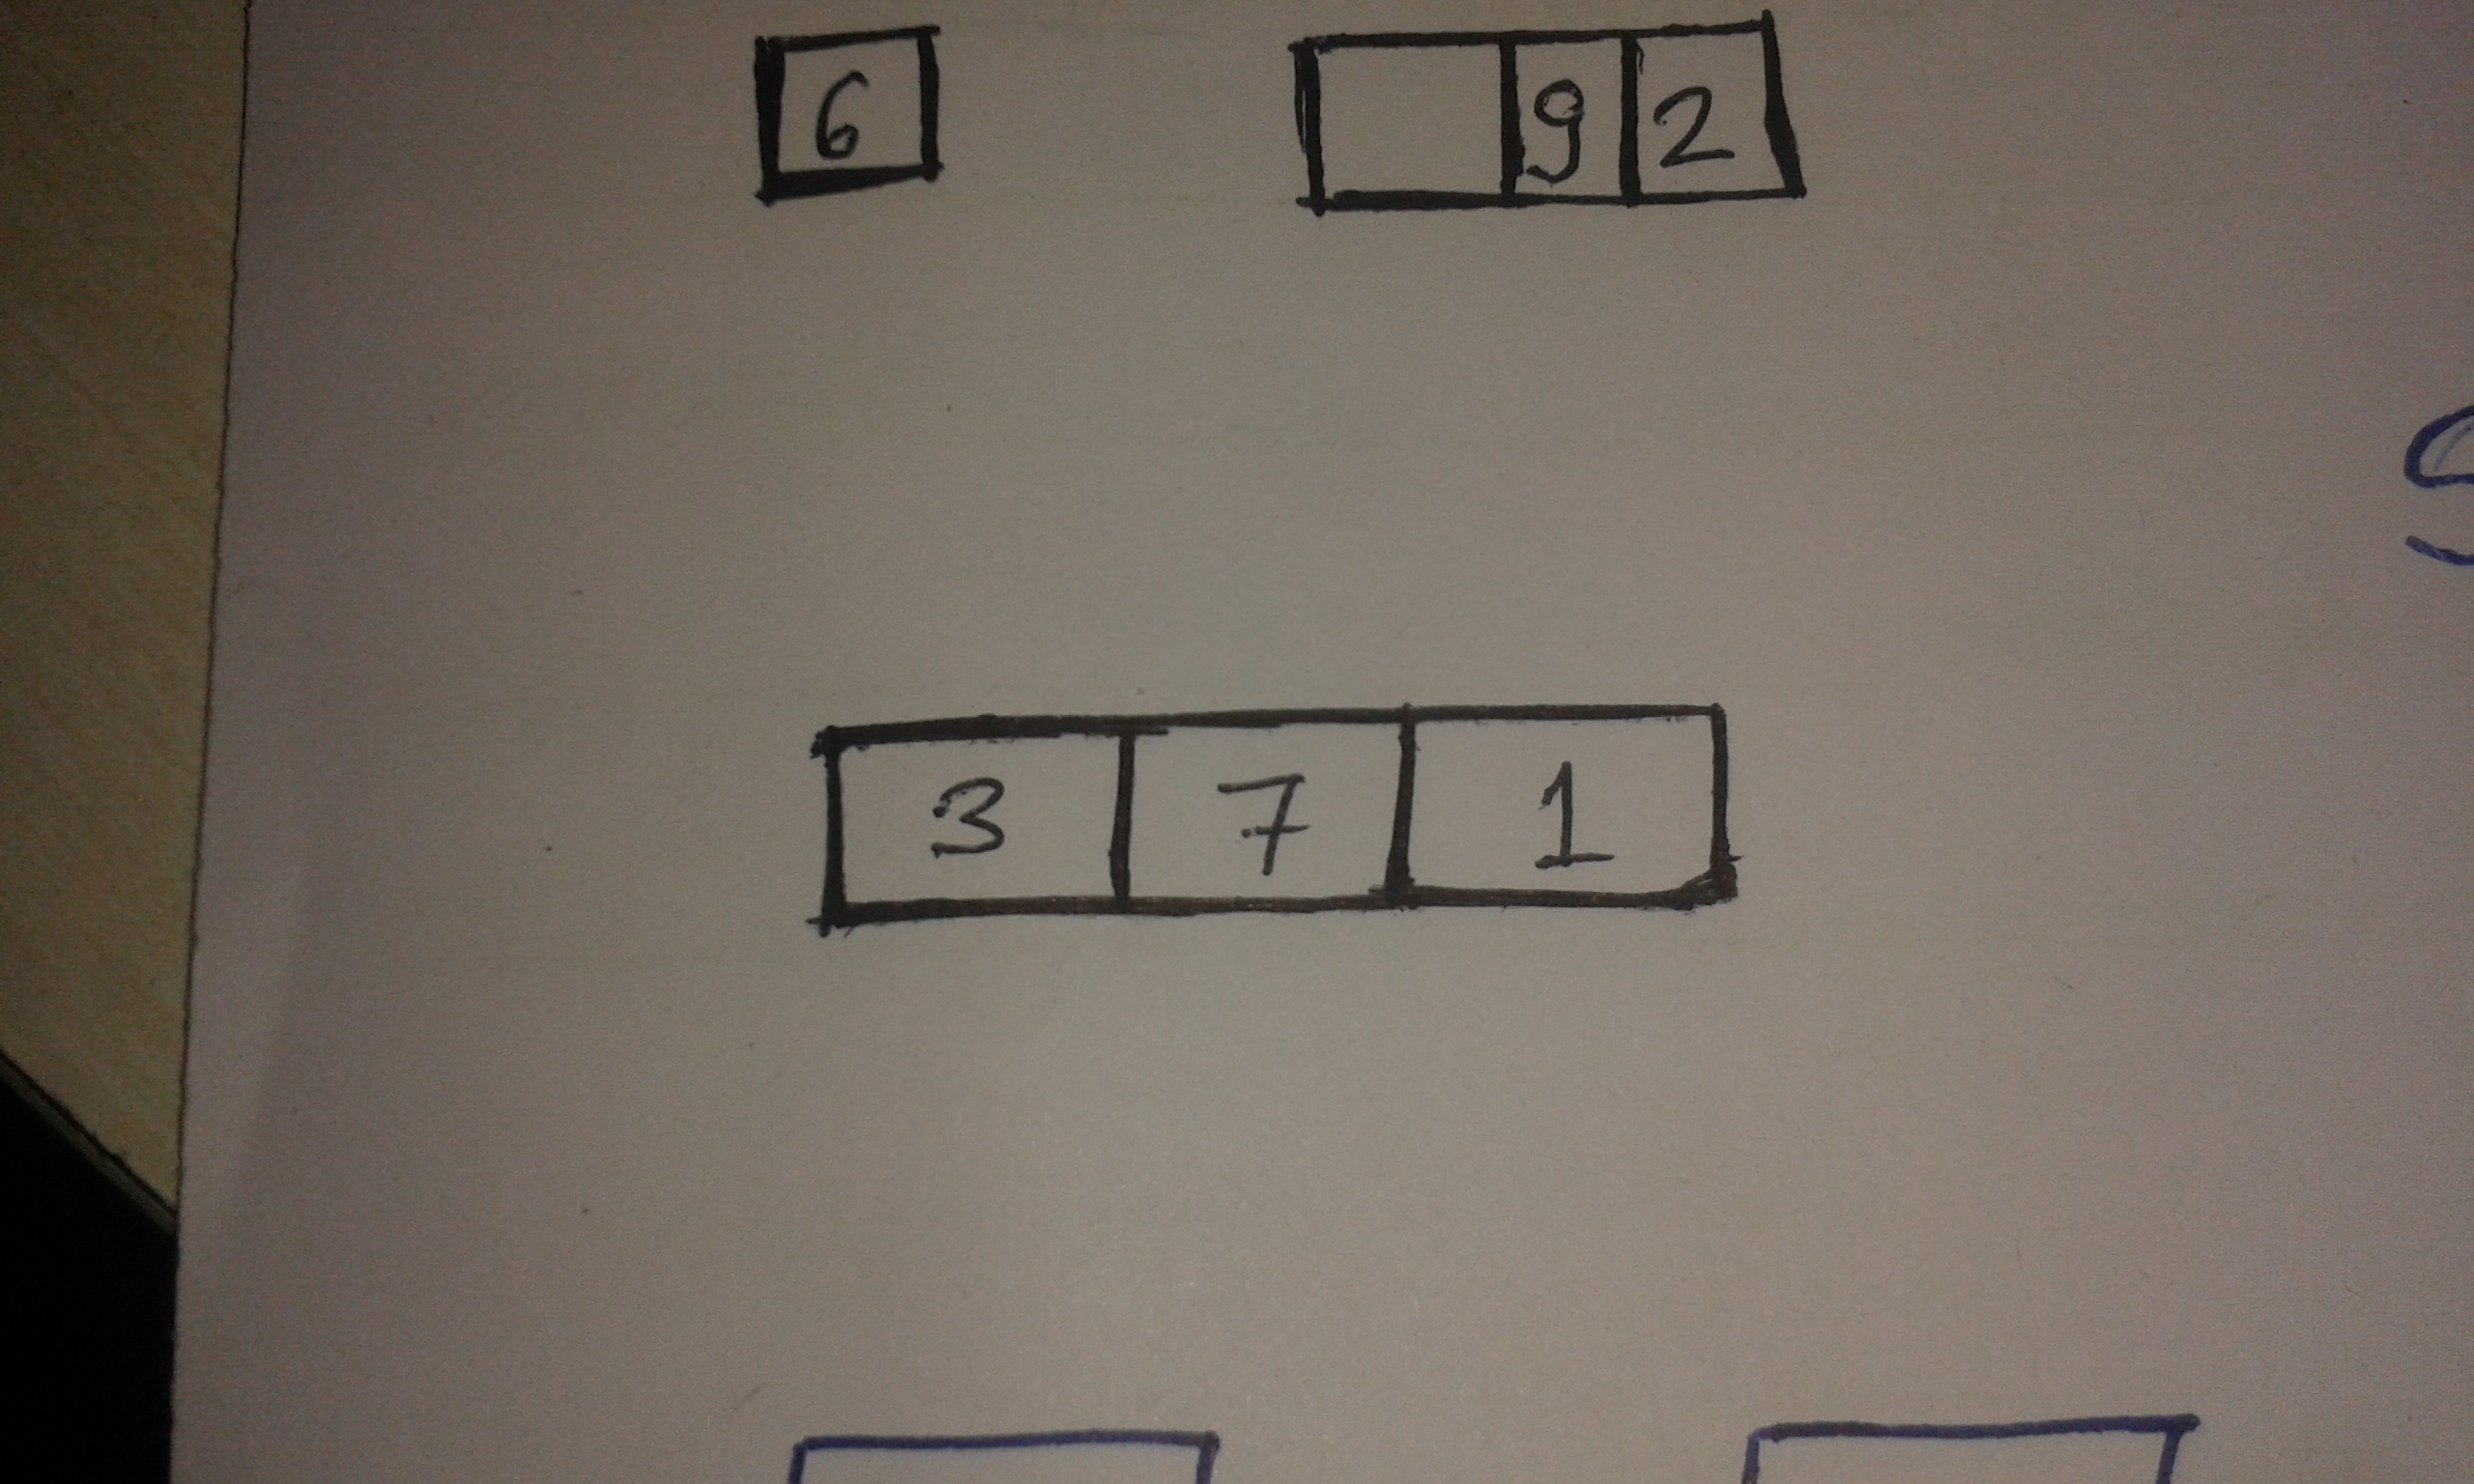 6 9 2
3 7 1